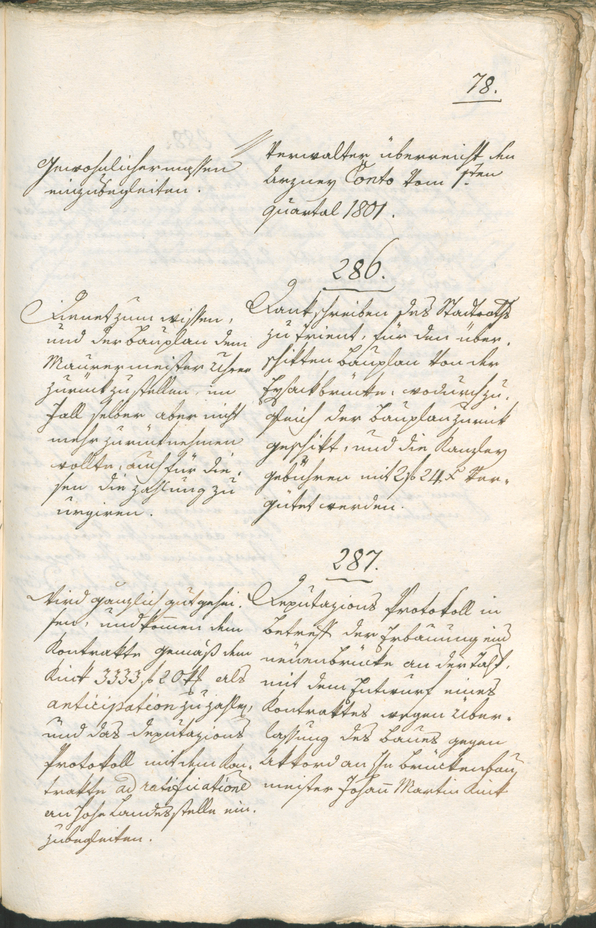 78.
Gewöhnlichermassen
einzubegleiten.
Verwalter überreicht den
Arzney Conto vom 1ten
quartal 1801.
286.
Dienet zum wissen,
und der Bauplan dem
Maurermeister
zurückzustellen, im
Fall selber aber nicht
mehr zurücknehmen
wollte, auch für die-
sen die Zahlung zu
urgiren.
Dankschreiben des Stadtraths
zu Trient, für den über-
schikten Bauplan von der
Eysackbrücke, wodurch zu-
gleich der Bauplan zurück
geschikt, und die Kanzley
gebühren mit 2 f 24 x ver-
gütet werden.
287.
Wird gänzlich gutgehei-
sen, und kommen dem
Kontrakte gemäß dem
Kink 3333 f 20 x als
anticipation zu zahlen,
und das deputazions
Protokoll mit dem Kon-
trakte ad ratificatione
an hohe Landesstelle ein-
zubegleiten.
Deputazions Protokoll in
betreff der Erbauung einer
neuen Brücke an der Talf.
mit dem Entwurf eines
Kontraktes wegen Über-
lassung des Baues gegen
Akkord an H. Brückenbau
meister Johann Martin Kink